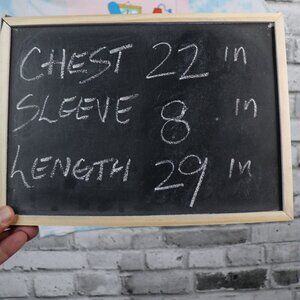 CHEST 22 in
SLEEVE 8 in
LENGTH 29 in